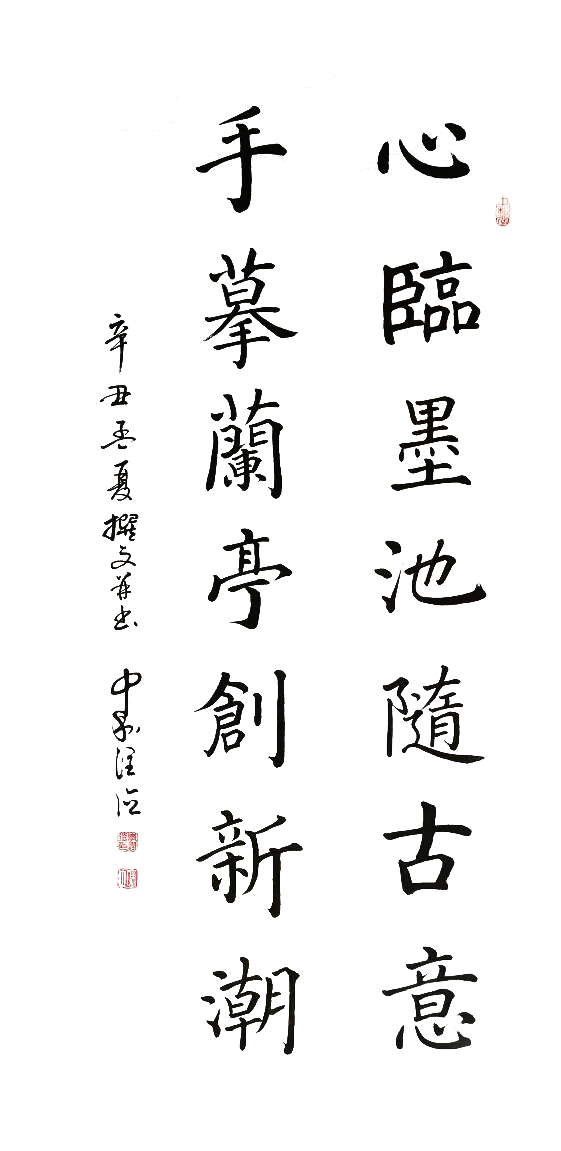 心臨墨池隨古意
手摹蘭亭創新潮
辛丑孟夏撰文並書